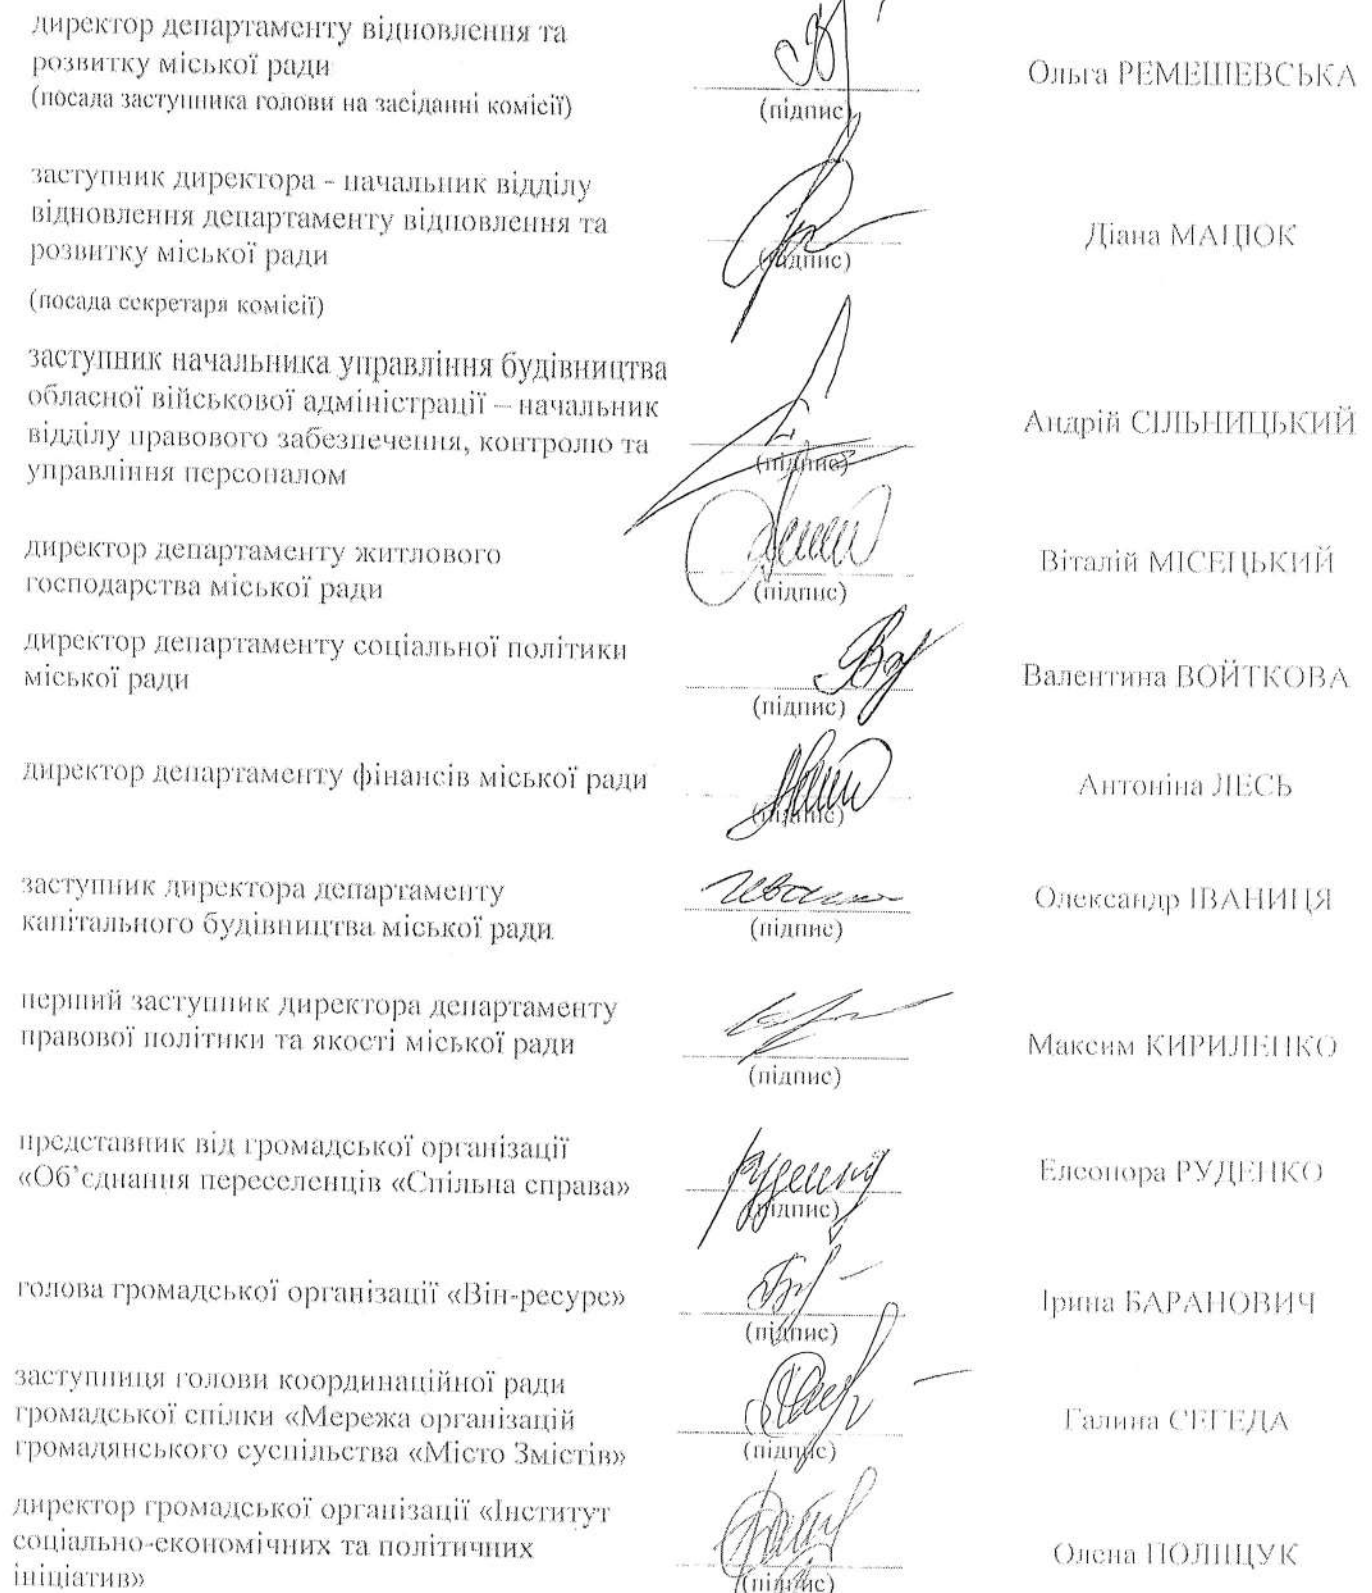 директор департаменту відновлення та
розвитку міської ради
(посада заступника голови на засіданні комісії)
(підпис)
Ольга РЕМЕШЕВСЬКА
заступник директора - начальник відділу
відновлення департаменту відновлення та
розвитку міської ради
(посада секретаря комісії)
(підпис)
Діана МАЦЮК
заступник начальника управління будівництва
обласної військової адміністрації – начальник
відділу правового забезпечення, контролю та
управління персоналом
(підпис)
Андрій СІЛЬНИЦЬКИЙ
директор департаменту житлового
господарства міської ради
(підпис)
Віталій МІСЕЦЬКИЙ
директор департаменту соціальної політики
міської ради
(підпис)
Валентина ВОЙТКОВА
директор департаменту фінансів міської ради
(підпис)
Антоніна ЛЕСЬ
заступник директора департаменту
капітального будівництва міської ради
(підпис)
Олександр ІВАНИЦЯ
перший заступник директора департаменту
правової політики та якості міської ради
(підпис)
Максим КИРИЛЕНКО
представник від громадської організації
«Об’єднання переселенців «Спільна справа»
(підпис)
Елеонора РУДЕНКО
голова громадської організації «Він-ресурс»
(підпис)
Ірина БАРАНОВИЧ
заступниця голови координаційної ради
громадської спілки «Мережа організацій
громадянського суспільства «Місто Змістів»
(підпис)
Галина СЕГЕДА
директор громадської організації «Інститут
соціально-економічних та політичних
ініціатив»
(підпис)
Олена ПОЛІЩУК